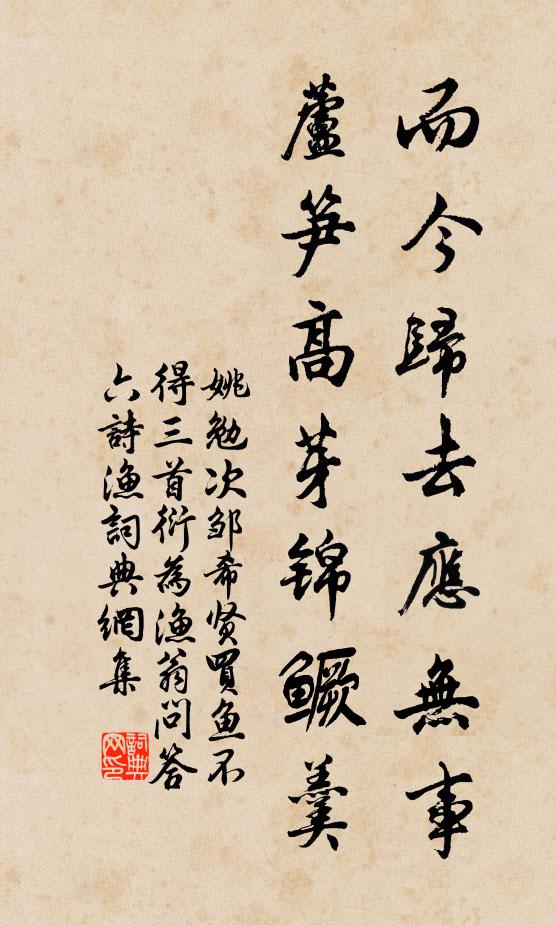 而今歸去應無事
蘆笋高芽锦鳜羹
姚勉次邹希贤買鱼不
得三首衍為漁翁問答
六詩漁詞典網集
詞典网印